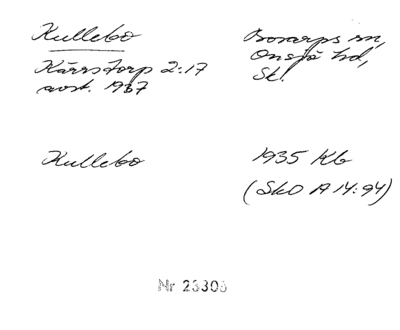 Kullebo
Bosarps sn,
Onsjö hd,
Sk.
Kärrstorp 2:17
avst. 1937
Kullebo
1935 Kb
(SkO A 14:94)
Nr 23303